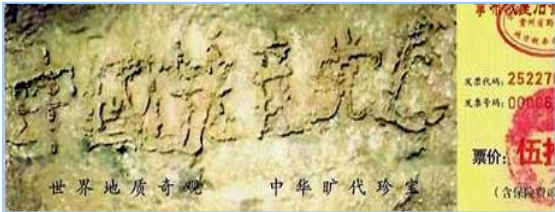 中国共产党亡
世界地质奇观 中华旷代珍宝
贵州省
发票代码: 25227
发票号码: 0000
票价: 伍
(含保险费